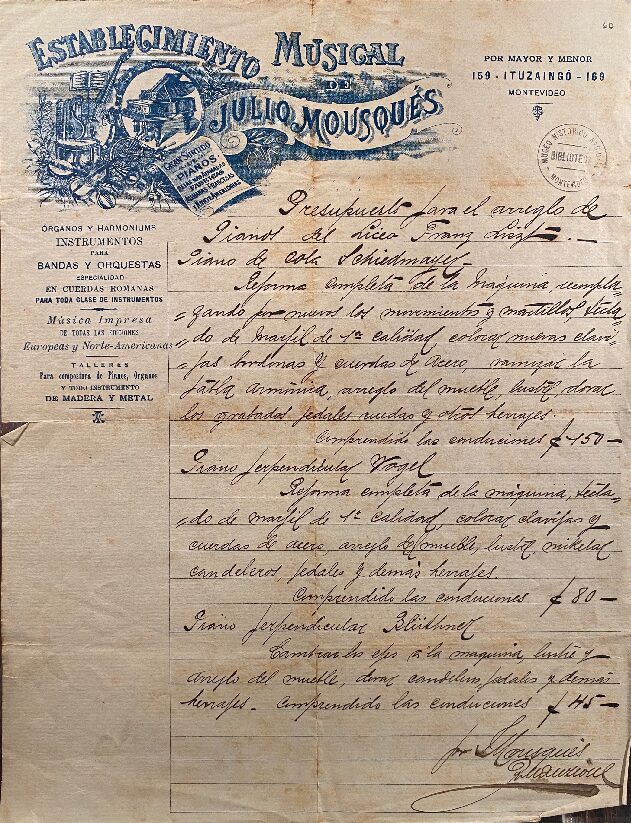 60
ESTABLECIMIENTO MUSICAL
DE
JULIO MOUSQUÉS
GRAN SURTIDO
DE
PIANOS
POR MAYOR Y MENOR
159 - ITUZAINGÓ - 169
MONTEVIDEO
MUSEO HISTÓRICO
BIBLIOTECA
MONTEVIDEO
ÓRGANOS Y HARMONIUMS
INSTRUMENTOS
PARA
BANDAS Y ORQUESTAS
ESPECIALIDAD
EN CUERDAS ROMANAS
PARA TODA CLASE DE INSTRUMENTOS
Música Impresa
DE TODAS LAS EDICIONES
Europeas y Norte-Americanas
TALLERES
Para compostura de Pianos, Organos
Y TODO INSTRUMENTO
DE MADERA Y METAL
Presupuesto para el arreglo de
Pianos del Liceo Franz Liszt. —
Piano de cola Schiedmayer
Reforma completa de la maquina, rempla-
=zando por nuevos los movimientos y martillos, tecla-
=do de marfil de 1ª calidad, colocar nuevas clavi-
=jas bordonas y cuerdas de acero, barnizar la
tabla armónica, arreglo del mueble, lustre, dorar
los grabados pedales ruedas y otros herrajes.
Comprendido las conduciones $ 150 —
Piano perpendicular Vogel
Reforma completa de la máquina, tecla-
=do de marfil de 1ª calidad, colocar clavijas y
cuerdas de acero, arreglo del mueble, lustre, nikelar
candeleros, pedales y demás herrajes.
Comprendido las conduciones $ 80 —
Piano perpendicular Blüthner
Cambiar los ejes a la maquina, lustre y
arreglo del mueble, dorar candeleros, pedales y demás
herrajes - Comprendido las conduciones $ 45 —
pr J Mousqués